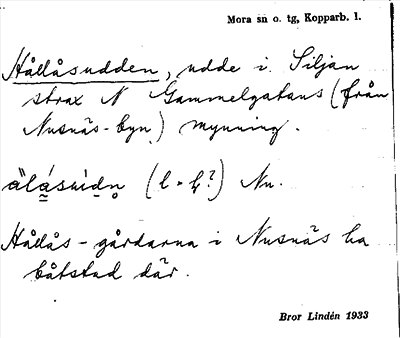 Mora sn o. tg, Kopparb. l.
Hållåsudden, udde i Siljan
strax N Gammelgatans (från
Nusnäs-byn) mynning.
(l = ł?) Nu.
Hållås-gårdarna i Nusnäs ha
båtstad där.
Bror Lindén 1933